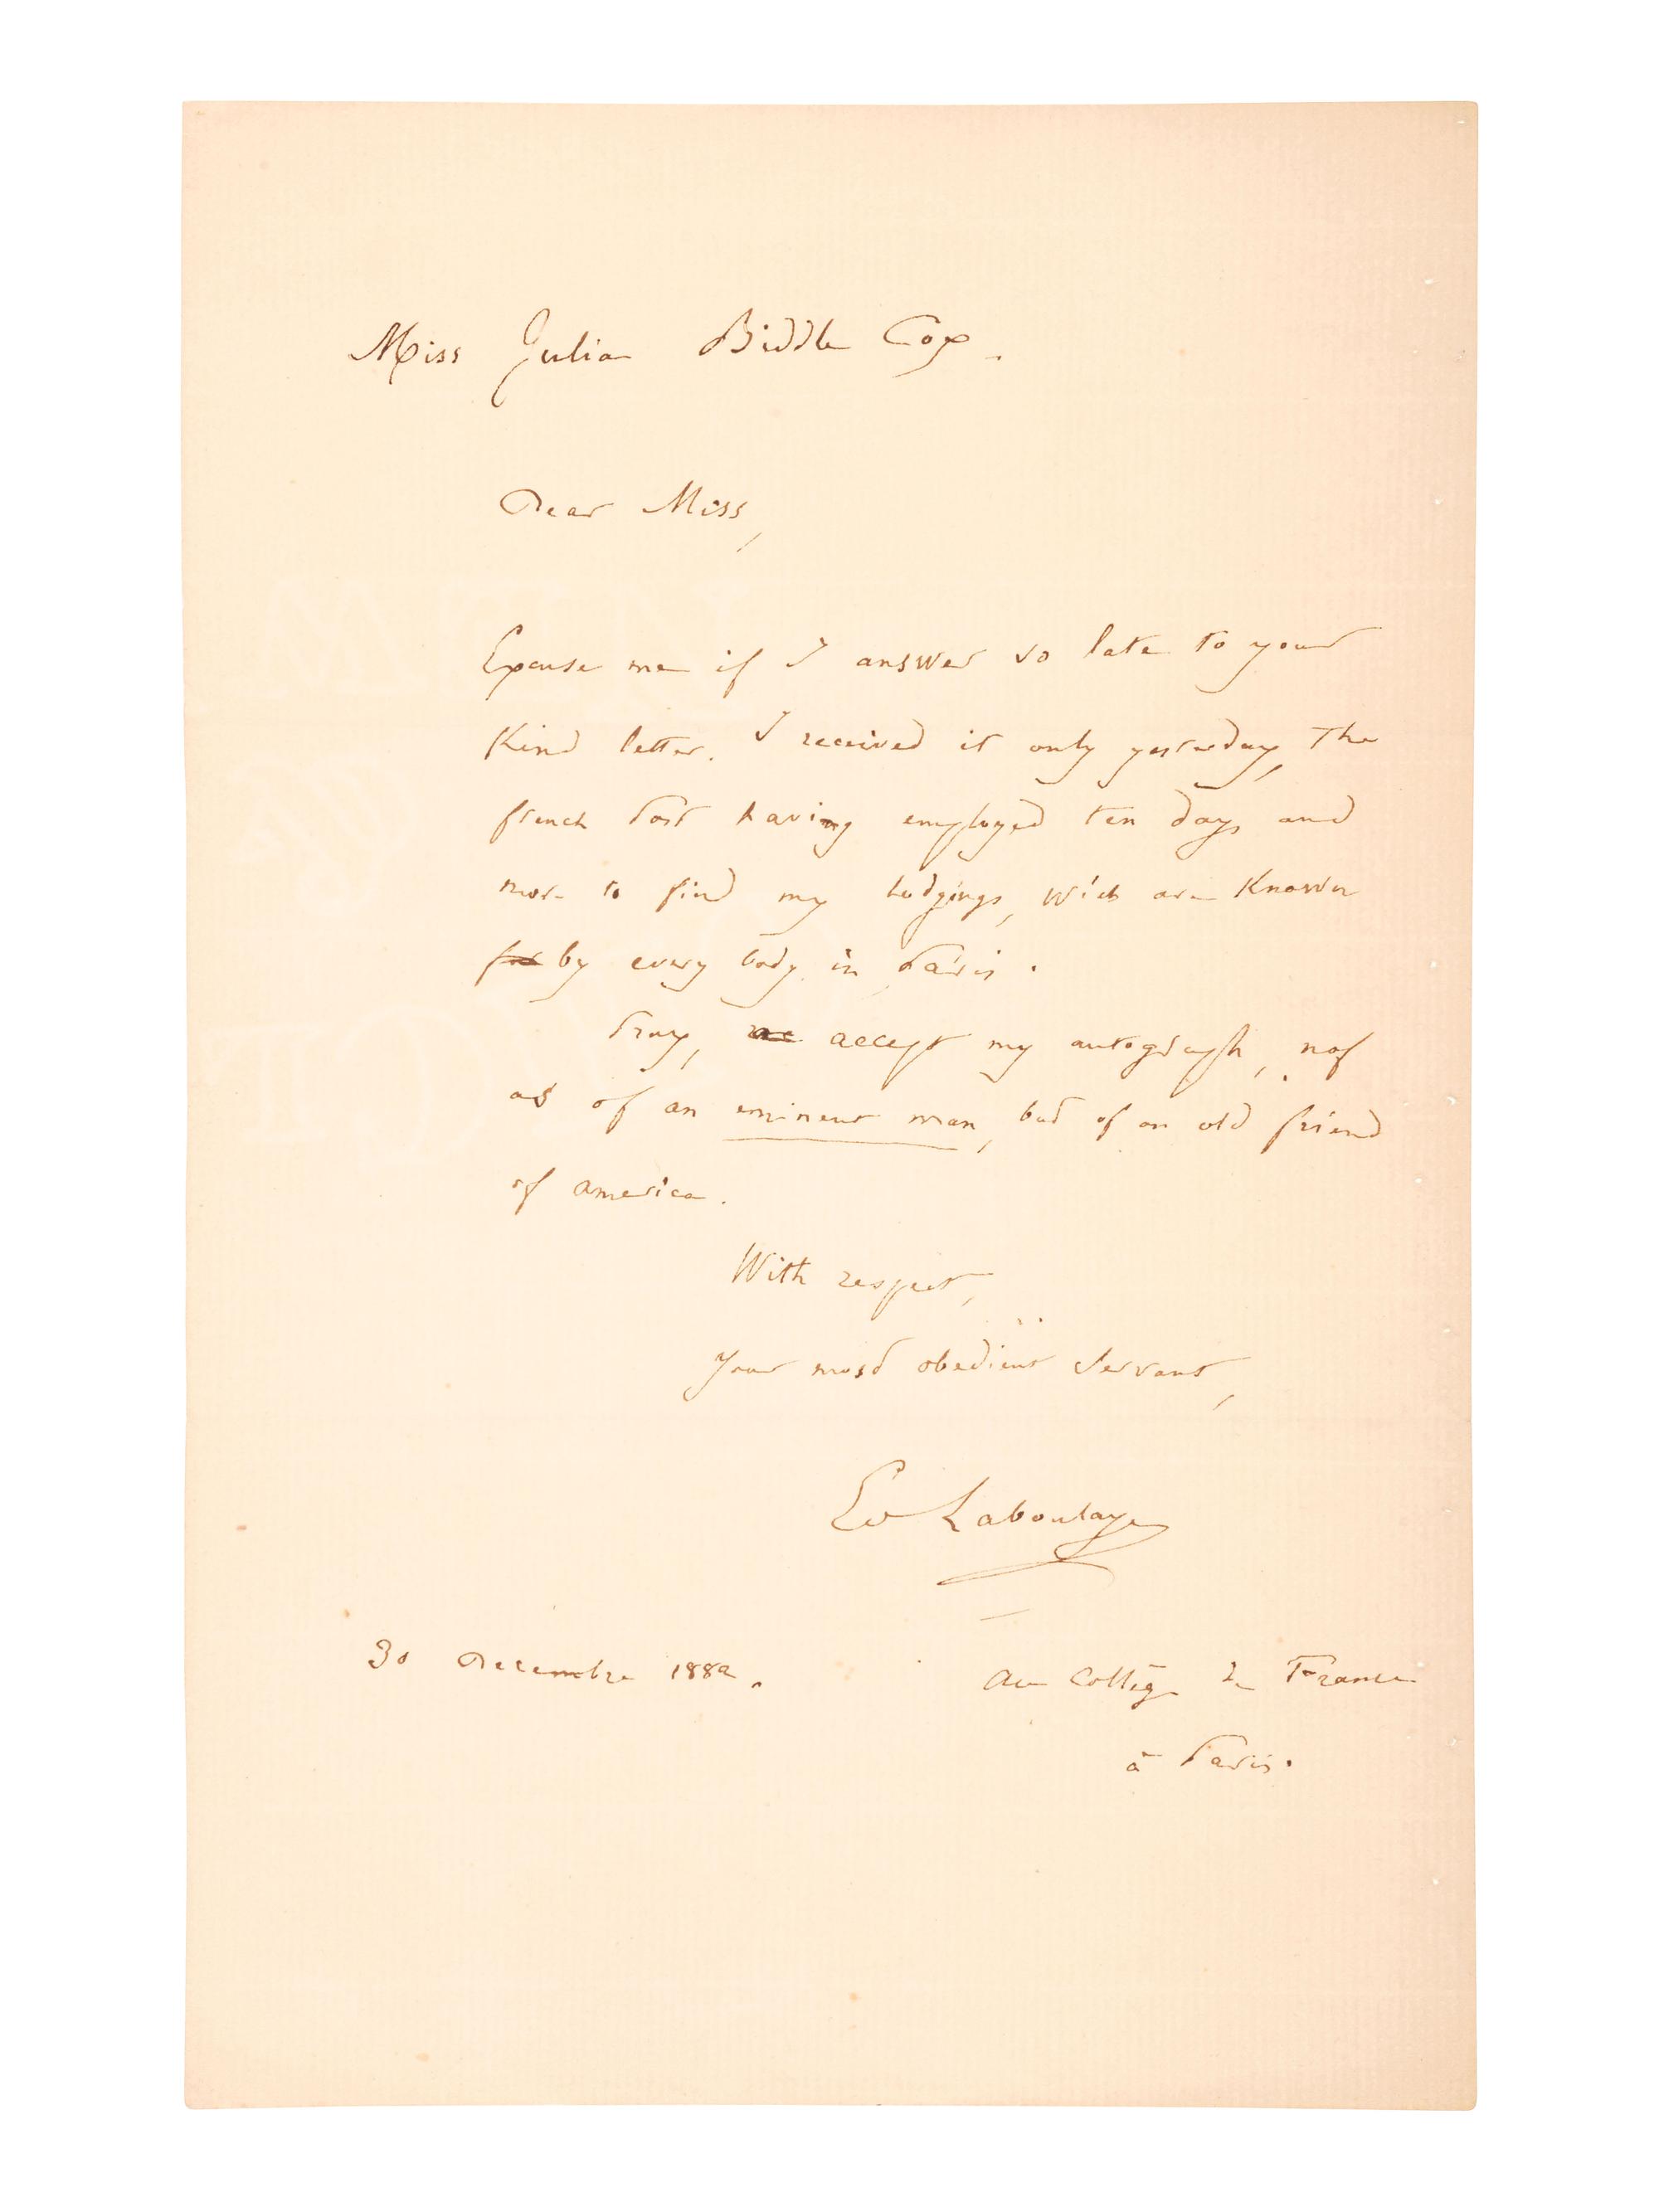 Miss Julia Biddle Cox.
Dear Miss,
Excuse me if I answer so late to your
Kind letter. I received it only yesterday, The
french Post having employed ten days and
more to find my lodgings, wich are Known
by every body in Paris.
Pray, accept my autograph, not
as of an eminent man, but of an old friend
of america.
With respect,
Your most obedient Servant,
Ed Laboulaye
30 Decembre 1882.
au Collège de France
à Paris.